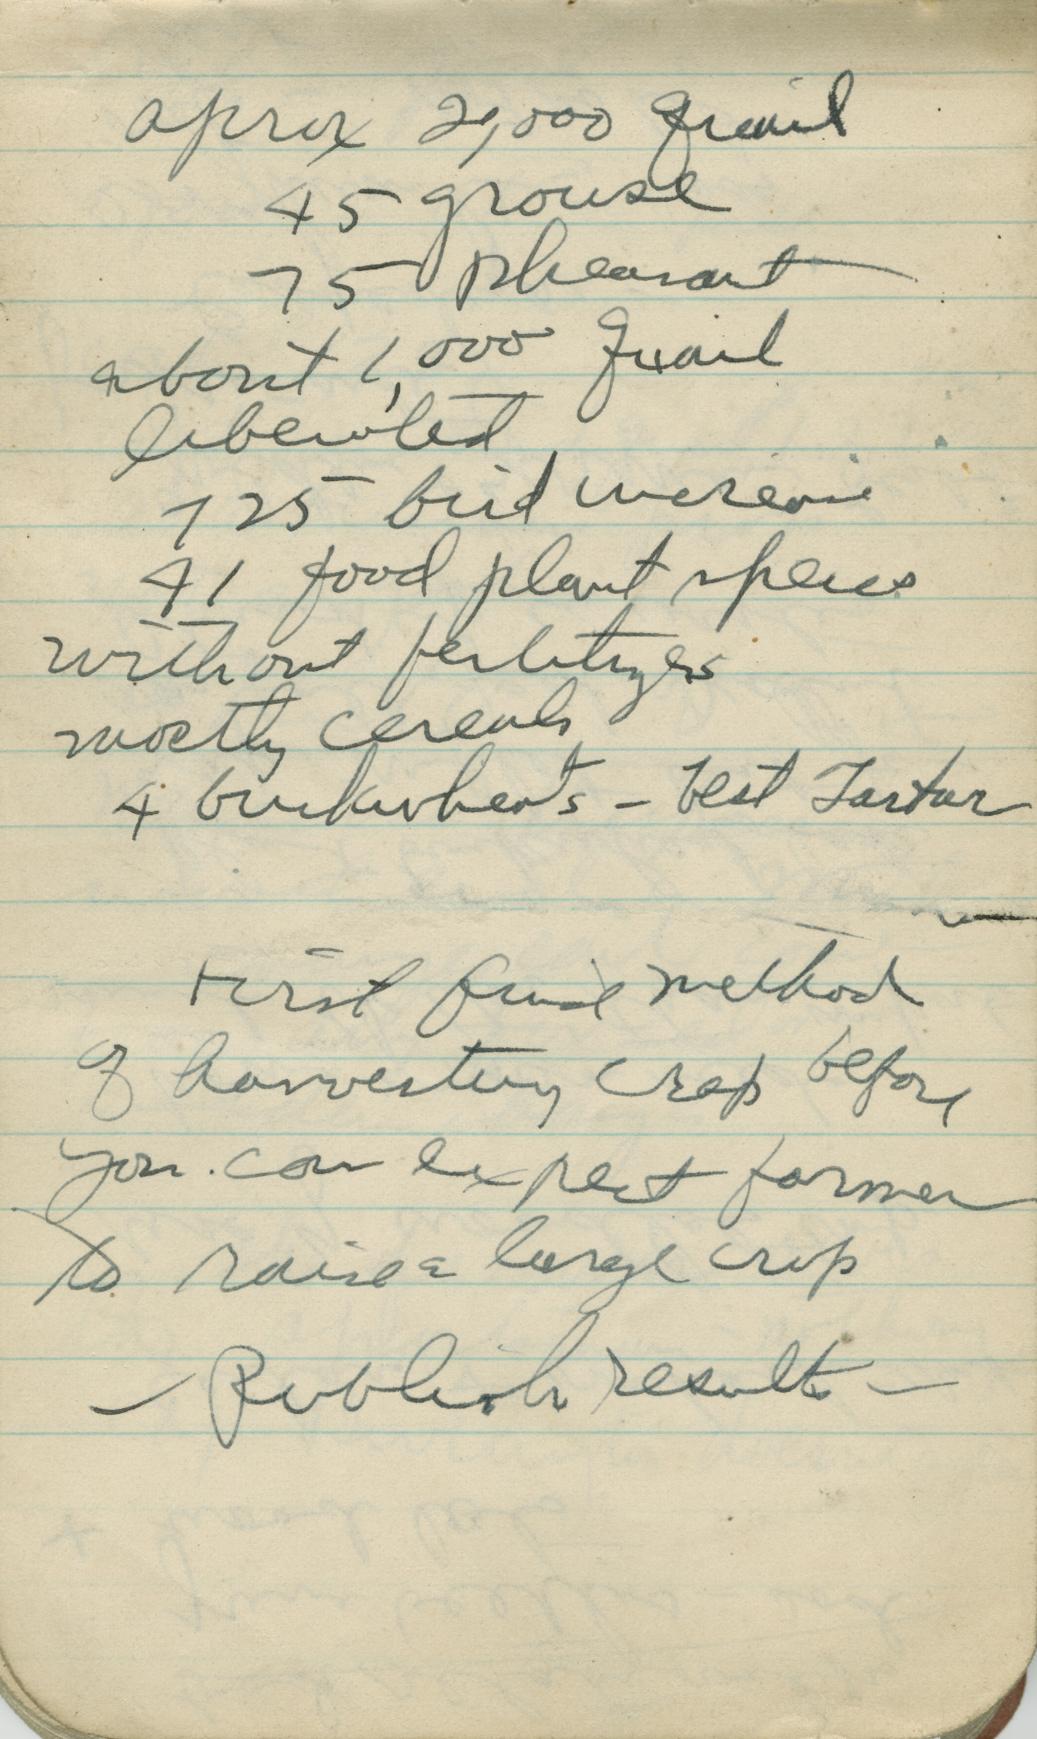 aprox 2,000 quail
45 grouse
75 pheasant
about 1,000 quail
liberated
725 bird increase
41 food plant species
without fertilizers
mostly cereals
4 buckwheats - best Tartar
First find method
of harvesting crop before
you can expect farmer
to raise a large crop
- Publish results -